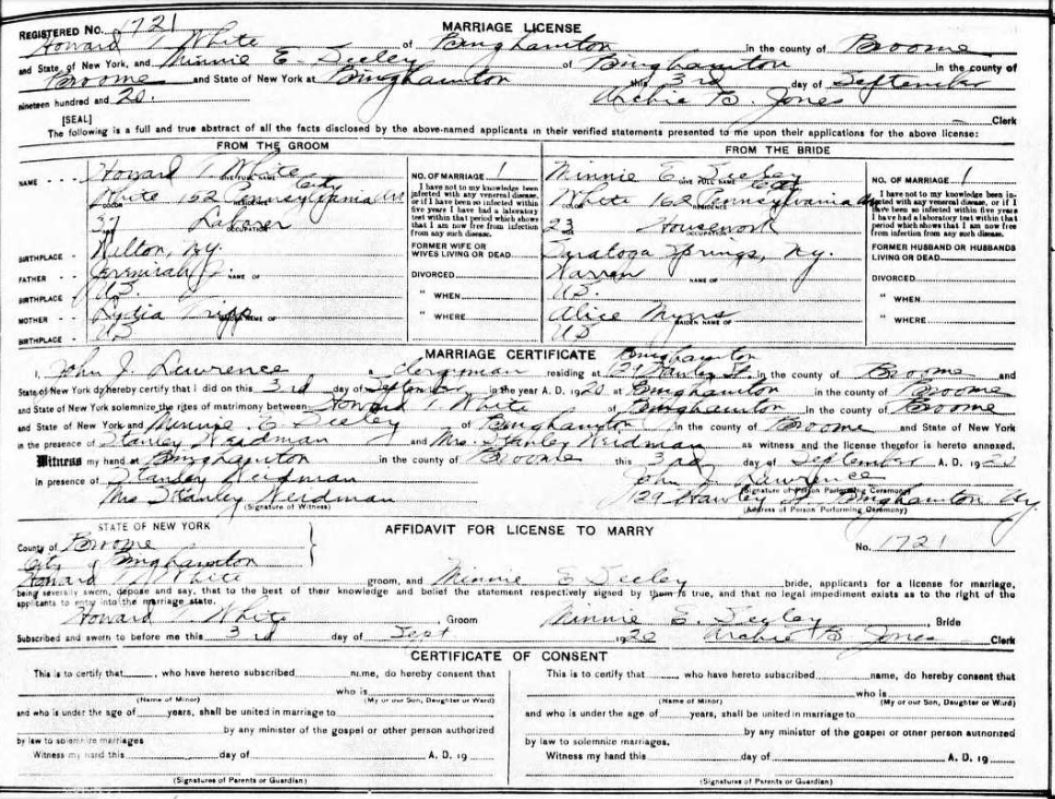 REGISTERED No. 1721 MARRIAGE LICENSE
Howard T. White of Binghamton in the county of Broome
and State of New York, and Minnie E. Seeley of Binghamton in the county of
Broome and State of New York at Binghamton this 3rd day of September
nineteen hundred and 20. Archie B. Jones
[SEAL] Clerk
The following is a full and true abstract of all the facts disclosed by the above-named applicants in their verified statements presented to me upon their applications for the above license:
FROM THE GROOM FROM THE BRIDE
NAME Howard T. White NO. OF MARRIAGE 1 Minnie E. Seeley GIVE FULL NAME NO. OF MARRIAGE 1
City City
White 152 Pennsylvania Av White 162 Pennsylvania Av
COLOR RESIDENCE COLOR RESIDENCE
I have not to my knowledge been infected with any venereal disease, or if I have been so infected within five years I have had a laboratory test within that period which shows that I am now free from infection from any such disease.
37 Laborer 23 Housework
OCCUPATION OCCUPATION
BIRTHPLACE Wilton, N.y. FORMER WIFE OR WIVES LIVING OR DEAD Saratoga Springs, N.y. FORMER HUSBAND OR HUSBANDS LIVING OR DEAD
FATHER Jeremiah J. NAME OF DIVORCED Warren NAME OF DIVORCED
BIRTHPLACE US " WHEN US " WHEN
MOTHER Lydia Tripp MAIDEN NAME OF " WHERE Alice Myers MAIDEN NAME OF " WHERE
BIRTHPLACE US US
MARRIAGE CERTIFICATE Binghamton
I, John J. Lawrence a Clergyman residing at 129 Hawley St. in the county of Broome and
State of New York do hereby certify that I did on this 3rd day of September in the year A. D. 1920 at Binghamton in the county of Broome
and State of New York solemnize the rites of matrimony between Howard T. White of Binghamton in the county of Broome
and State of New York and Minnie E. Seeley of Binghamton in the county of Broome and State of New York
in the presence of Stanley Weidman and Mrs. Stanley Weidman as witness and the license therefor is hereto annexed.
Witness my hand at Binghamton in the county of Broome this 3rd day of September A. D. 1920
In presence of Stanley Weidman John J. Lawrence
(Signature of Person Performing Ceremony)
Mrs Stanley Weidman 129 Hawley St. Binghamton Ny.
(Signature of Witness) (Address of Person Performing Ceremony)
STATE OF NEW YORK AFFIDAVIT FOR LICENSE TO MARRY
County of Broome No. 1721
City of Binghamton
Howard T. White groom, and Minnie E Seeley bride, applicants for a license for marriage,
being severally sworn, depose and say, that to the best of their knowledge and belief the statement respectively signed by them is true, and that no legal impediment exists as to the right of the
applicants to enter into the marriage state.
Howard T. White Groom Minnie E. Seeley Bride
Subscribed and sworn to before me this 3rd day of Sept 1920 Archie B. Jones Clerk
CERTIFICATE OF CONSENT
This is to certify that , who have hereto subscribed name, do hereby consent that This is to certify that , who have hereto subscribed name, do hereby consent that
who is who is
(Name of Minor) (My or our Son, Daughter or Ward) (Name of Minor) (My or our Son, Daughter or Ward)
and who is under the age of years, shall be united in marriage to and who is under the age of years, shall be united in marriage to
by any minister of the gospel or other person authorized by any minister of the gospel or other person authorized
by law to solemnize marriages by law to solemnize marriages.
Witness my hand this day of A. D. 19 Witness my hand this day of A. D. 19
(Signatures of Parents or Guardian) (Signatures of Parents or Guardian)